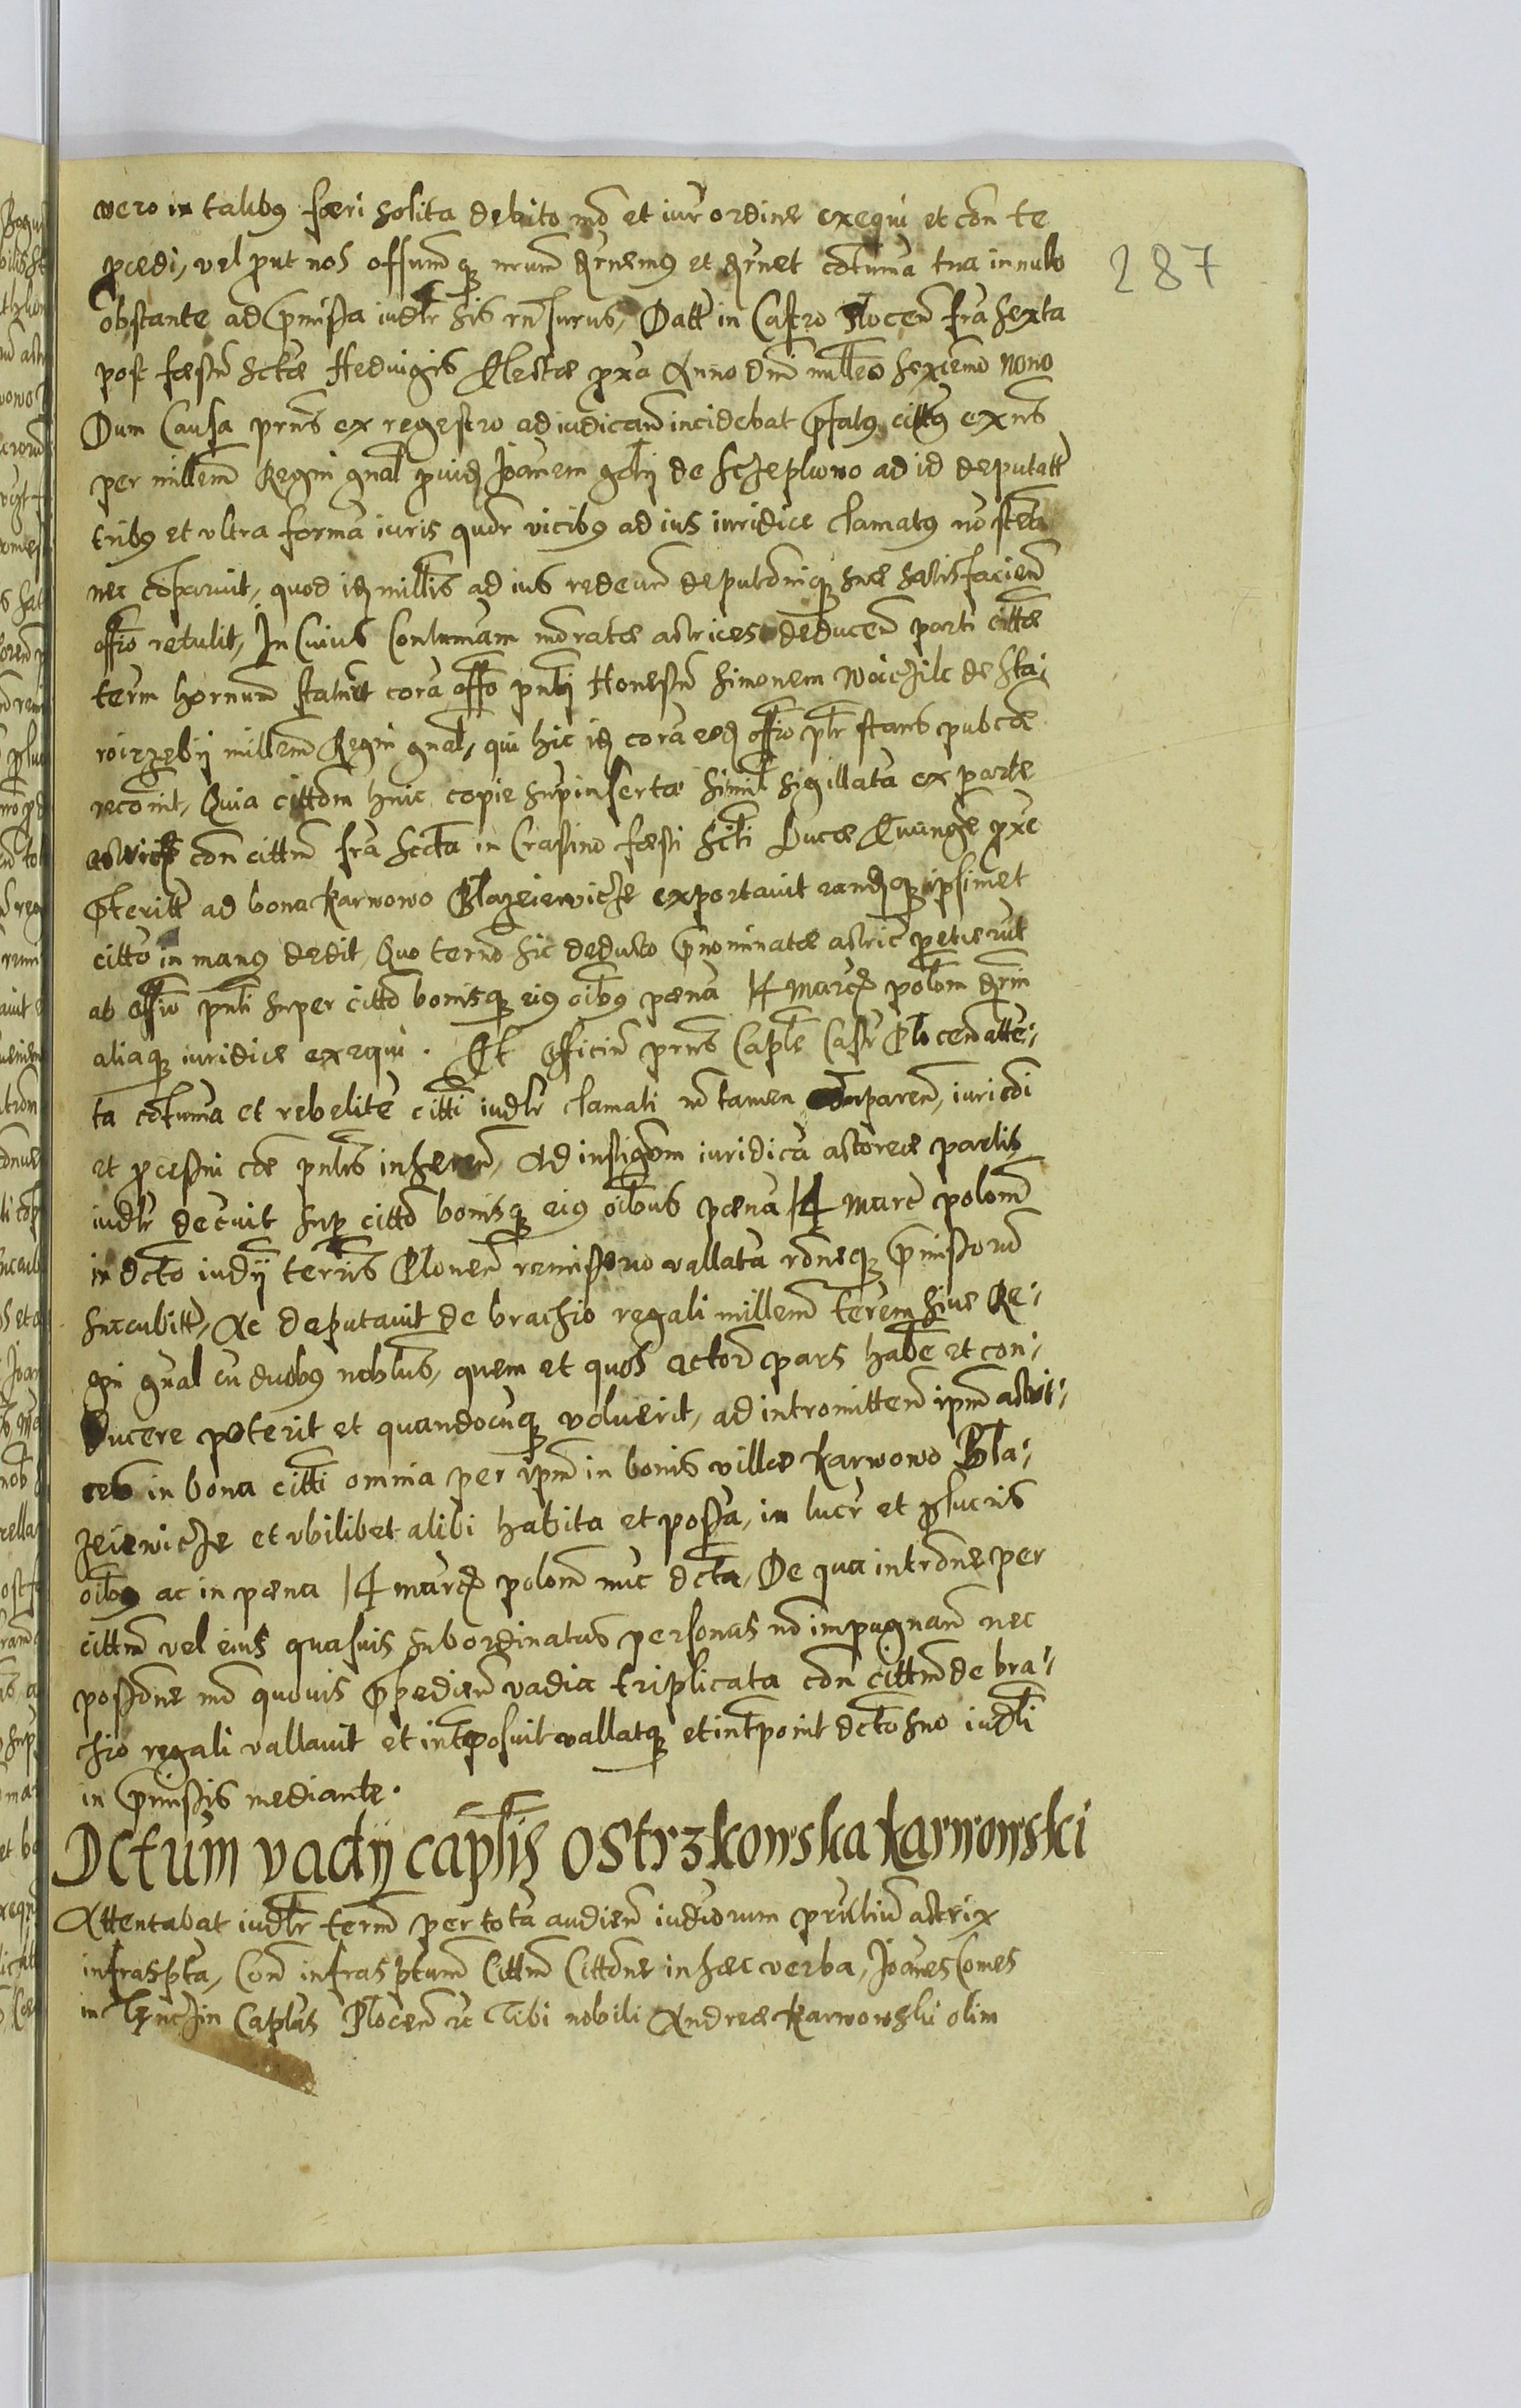 vero in talibg fieri solita debito mo et iur ordine exequi et con te
pcedi, vel put nos offium q nrum drnemg et drnet cotuma tua in nulo
obstante ad pmissa iudlr sis rnsurus, Datt in Castro Plocen fra sexta
post faestu Sctae Hedwigis Electae pxa Anno Dni milleo sexcemo nono
Dum Causa prns ex regestro ad iudicand incidebat pfatg cittg exns
per millem Regni gnal puid Joanem golij de Sczeplwno ad id deputatt
tribg et vltra forma iuris quor vicibg ad ius iuridice clamatg no stetit
nec coparuit, quod id millis ad ius redeun deputoniq suae satisfacien
offio retulit, In Cuius Contumam moratae actrices deducen parti cittae
term hornum statuit cora offo pnti Honestu Simonem Woiczik de Sta-
roizzebij millem Regni gnal, qui hic id cora eod offio plr stans pubcae
reconit, Quia cittom huic copie supinserta simil sigillata ex parte
actrich con cittm fra Secta in Crastino faesti Scti Lucae Euangae pxe
pteritt ad bona Karwowo Blazeiewicze exportavit eandq ipsimet
citto in mang dedit, Quo termo sic deducto pnominatae actric petierut
ab offio pnti super citto bonisq eig oibg paena 14 marcs polom drni
aliaq iuridice exequi. Et Officiu prns Caple Castr Plocen atte-
ta cotuma et rebelite citti iudlr clamati no tamen comparen, iuri coi
et pcessui cae pntis inheren, Ad instigom iuridica actoreae partis
iudlr decuit sup citto bonisq eig oibus paena 14 marc polom
in dcto iudij terris Plonen remissevo vallata roneq pmissoru
succubitt, Ac deputavit de brachio regali millem terem sive Re-
gni gnal cu duobg noblibs, quem et quos actor pars habe et con-
ducere poterit et quandocuq voluerit, ad intromitten ipm actri-
ces in bona citti omnia per ipm in bonis villae Karwowo Bla-
zeiewicze et vbilibet alibi habita et possa, in lucr et plucris
oibg ac in paena 14 marcs polom nuc dcta, De qua introne per
cittm vel eius quasuis subordinatas personas no impugnan nec
possione mo quouis ppedien vadia triplicata con cittm de bra-
chio regali vallavit et interposuit vallatq et interponit dcto suo iudli
in pmissis mediante.
Dctum vadij caplis Ostrzkowska Karwowski
Attentabat iudlr term per tota audien iudiorum prntium actrix
infraspta, Con infrasptum Cittm Cittone in haec verba, Joanes Comes
in Tynczin Caplas Plocen rc Tibi nobili Andreae Karwowski olim
287